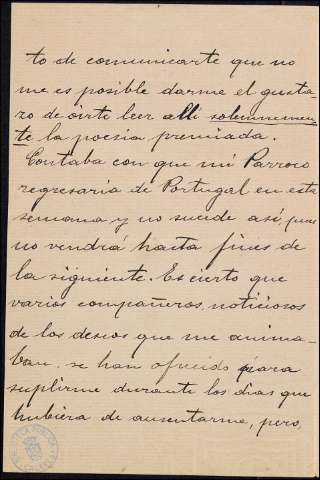 to de comunicarte que no
me es posible darme el gusta
zo de oirte leer alli solemnemen
te la poesia premiada.
Contaba con que mi Parroco
regresaria de Portugal en esta
semana y no sucede asi, pues
no vendrá hasta fines de
la siguiente. Es cierto que
varios compañeros, noticiosos
de los deseos que me anima-
ban, se han ofrecido para
suplirme durante los dias que
hubiera de ausentarme, pero,